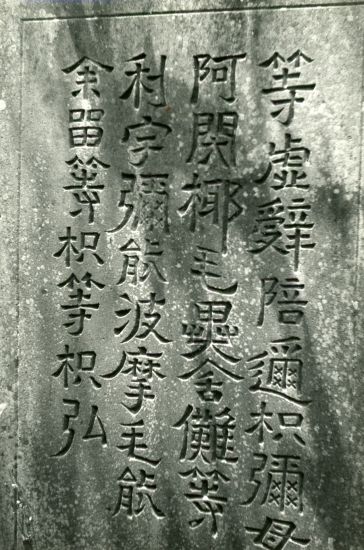 等虚辭陪邇枳彌母
阿閇椰毛異舍儺等
利宇彌能波摩毛能
余留等枳等枳弘